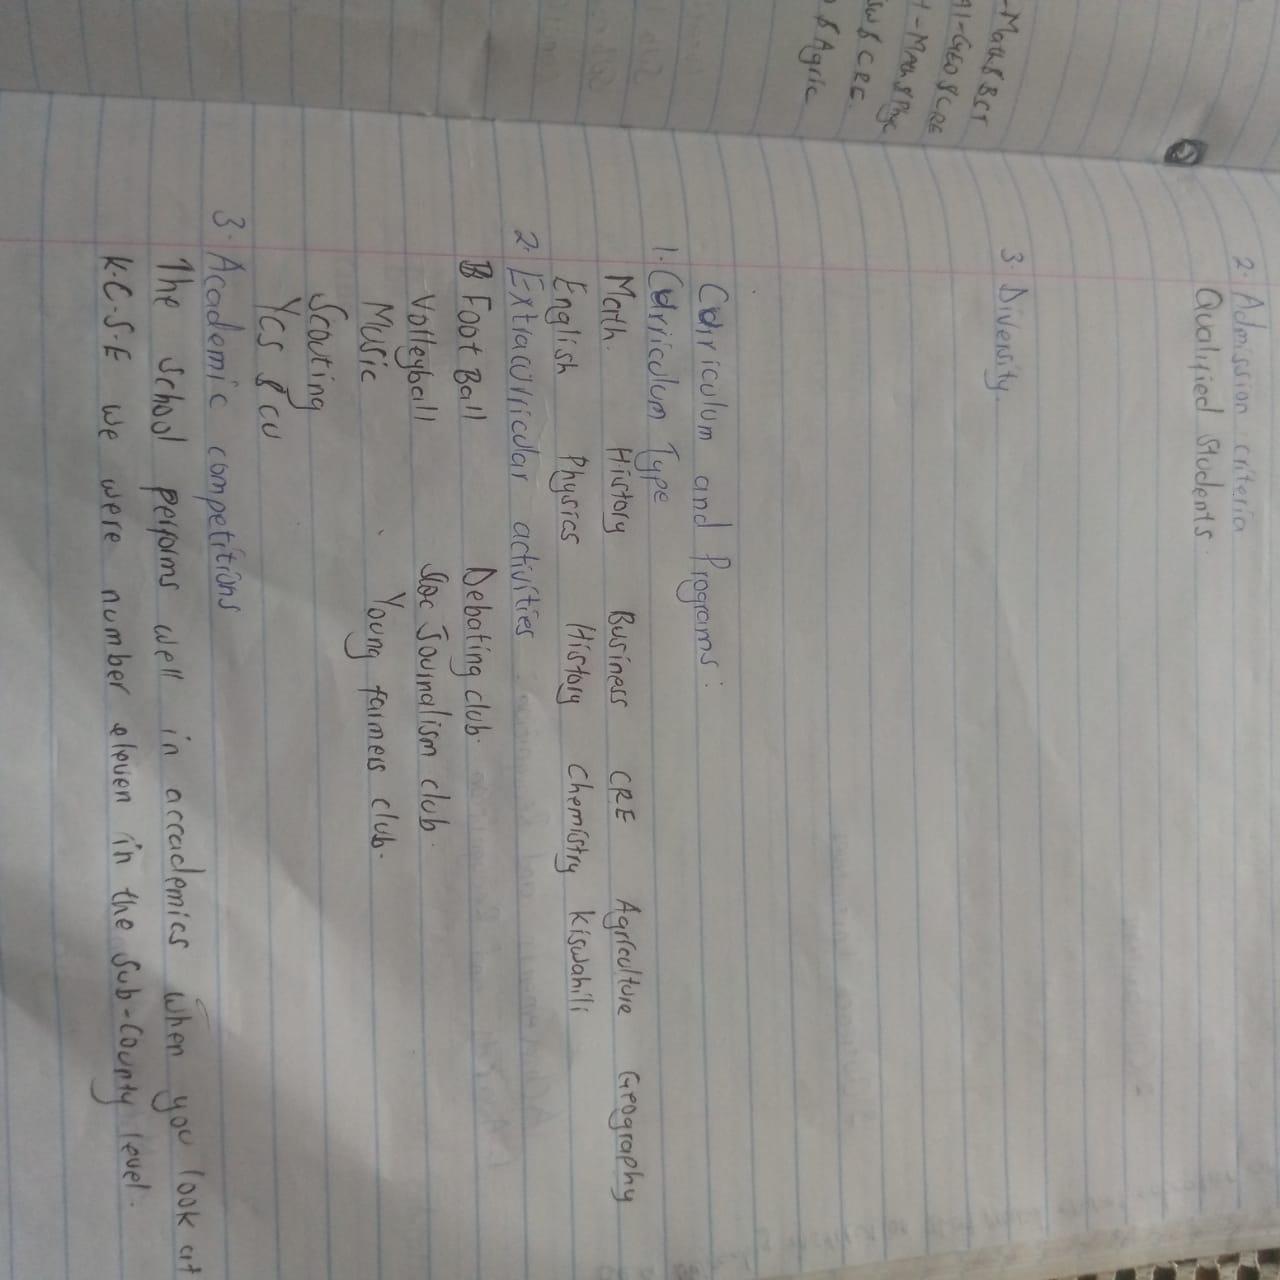 - Maths BST
- GEO & CRE
- Maths Phyc
& CRE
& Agric
2. Admission criteria
Qualified students.
3. Diversity.
Curriculum and Programs:
1. Curriculum Type
Math. History Business CRE Agriculture Geography
English Physics History Chemistry Kiswahili
2. Extracurricular activities
Foot Ball Debating club.
Volleyball Journalism club.
Music Young farmers club.
Scouting
YCS & CU
3. Academic competitions
The school performs well in accademics when you look at
K.C.S.E we were number eleven in the sub-county level.